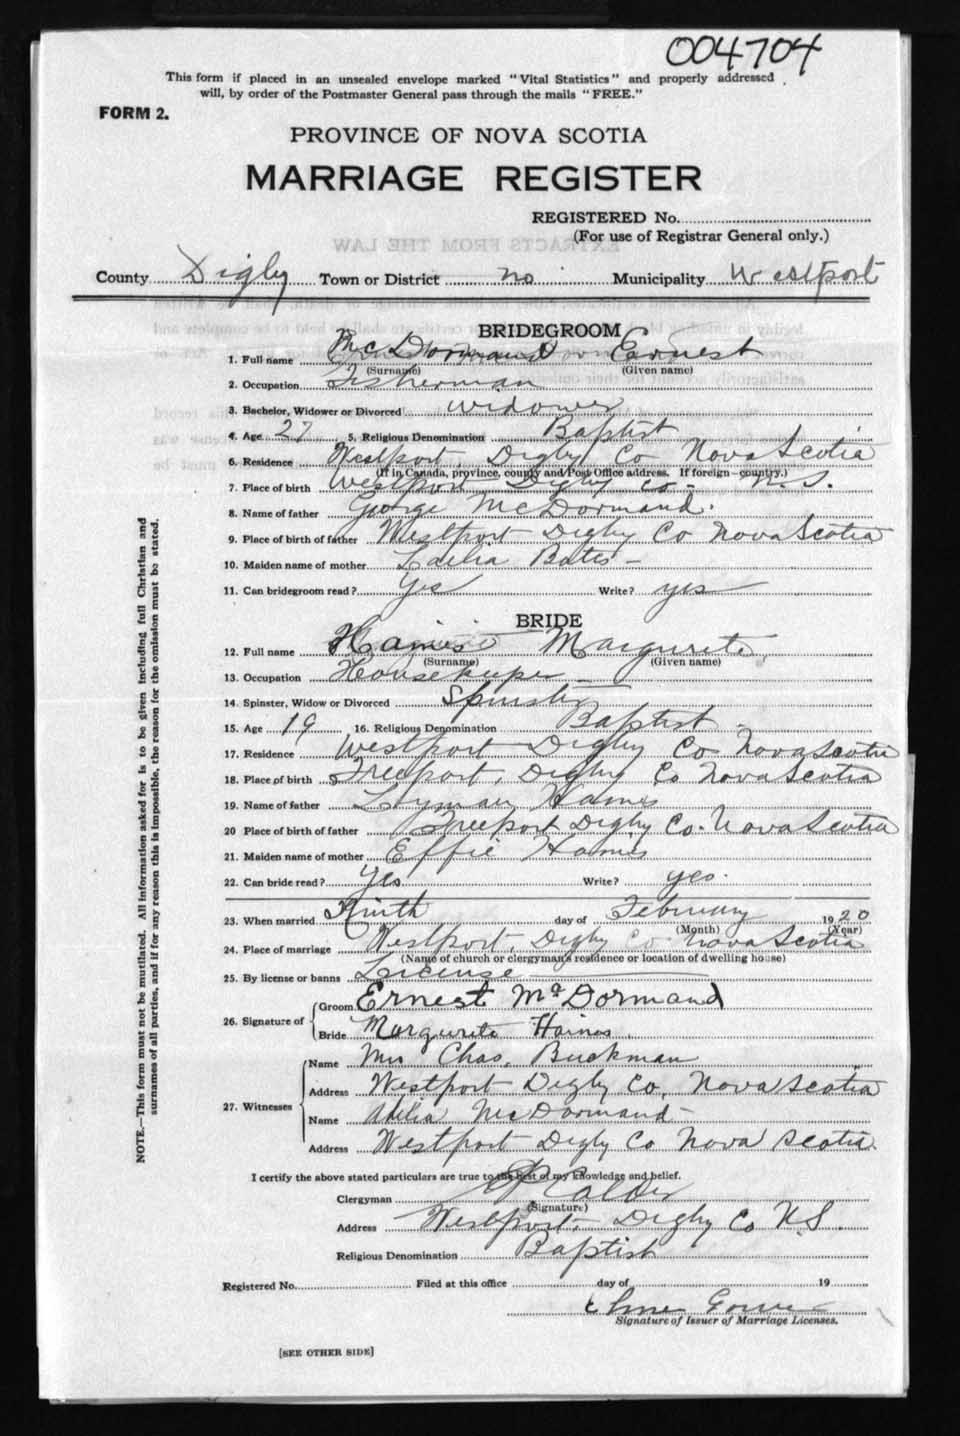 004704
This form if placed in an unsealed envelope marked "Vital Statistics" and properly addressed
will, by order of the Postmaster General pass through the mails "FREE."
FORM 2.
PROVINCE OF NOVA SCOTIA
MARRIAGE REGISTER
REGISTERED No.
(For use of Registrar General only.)
County Digby Town or District no Municipality Westport
BRIDEGROOM
1. Full name McDormand Earnest
(Surname) (Given name)
2. Occupation Fisherman
3. Bachelor, Widower or Divorced widower
4. Age 27 5. Religious Denomination Baptist
6. Residence Westport, Digby Co Nova Scotia
(If in Canada, province, county and Post Office address. If foreign—country.)
7. Place of birth Westport Digby co- N.S.
8. Name of father George McDormand.
9. Place of birth of father Westport Digby Co Nova Scotia
10. Maiden name of mother Bates -
11. Can bridegroom read? Yes Write? yes
BRIDE
12. Full name Hains Margurite
(Surname) (Given name)
13. Occupation Housekeeper -
14. Spinster, Widow or Divorced Spinster
15. Age 19 16. Religious Denomination Baptist -
17. Residence Westport Digby Co Nova Scotia
18. Place of birth Freeport, Digby Co Nova Scotia
19. Name of father Lyman Hames
20 Place of birth of father Freeport Digby Co. Nova Scotia
21. Maiden name of mother Effie Hames
22. Can bride read? Yes Write? yes.
23. When married Ninth day of February 1920
(Month) (Year)
24. Place of marriage Westport, Digby Co- Nova Scotia
(Name of church or clergyman's residence or location of dwelling house)
25. By license or banns License
26. Signature of Groom Ernest McDormand
Bride Margurite Haines.
27. Witnesses Name Mrs Chas. Buckman
Address Westport Digby Co, Nova Scotia
Name Adelia McDormand
Address Westport Digby Co Nova Scotia.
I certify the above stated particulars are true to the best of my knowledge and belief.
Clergyman Calder
(Signature)
Address Westport, Digby Co N.S.
Religious Denomination Baptist
Registered No. Filed at this office day of 19
Signature of Issuer of Marriage Licenses.
[SEE OTHER SIDE]
NOTE.—This form must not be mutilated. All information asked for is to be given including full Christian and
surnames of all parties, and if for any reason this is impossible, the reason for the omission must be stated.